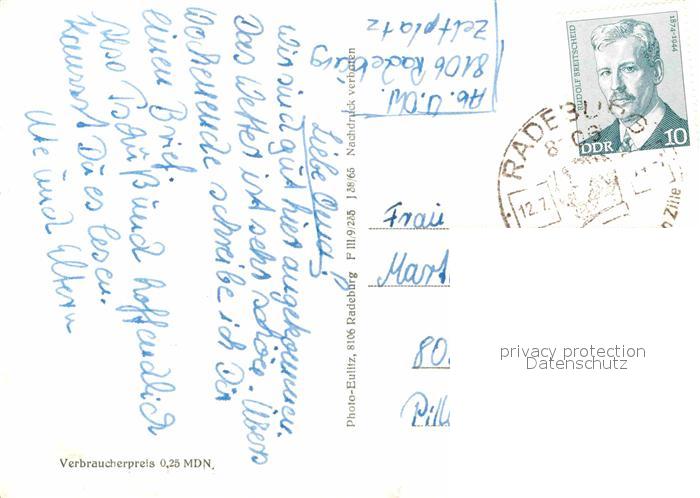 Liebe Omi,
wir sind gut hier angekommen.
Das Wetter ist sehr schön. Übers
Wochenende schreibe ich Dir
einen Brief.
Also Tschüß und hoffentlich
kannst Du es lesen.
Ute und Eltern
Verbraucherpreis 0,25 MDN
Photo-Eulitz, 8106 Radeburg F III/9/235 J 38/65 Nachdruck verboten
Ab. U.
8106 Radeburg
Zeltplatz
RUDOLF BREITSCHEID 1874-1944
DDR 10
RADEBURG
12.7.
Zille
Frau
Mart
80
Pill
privacy protection
Datenschutz